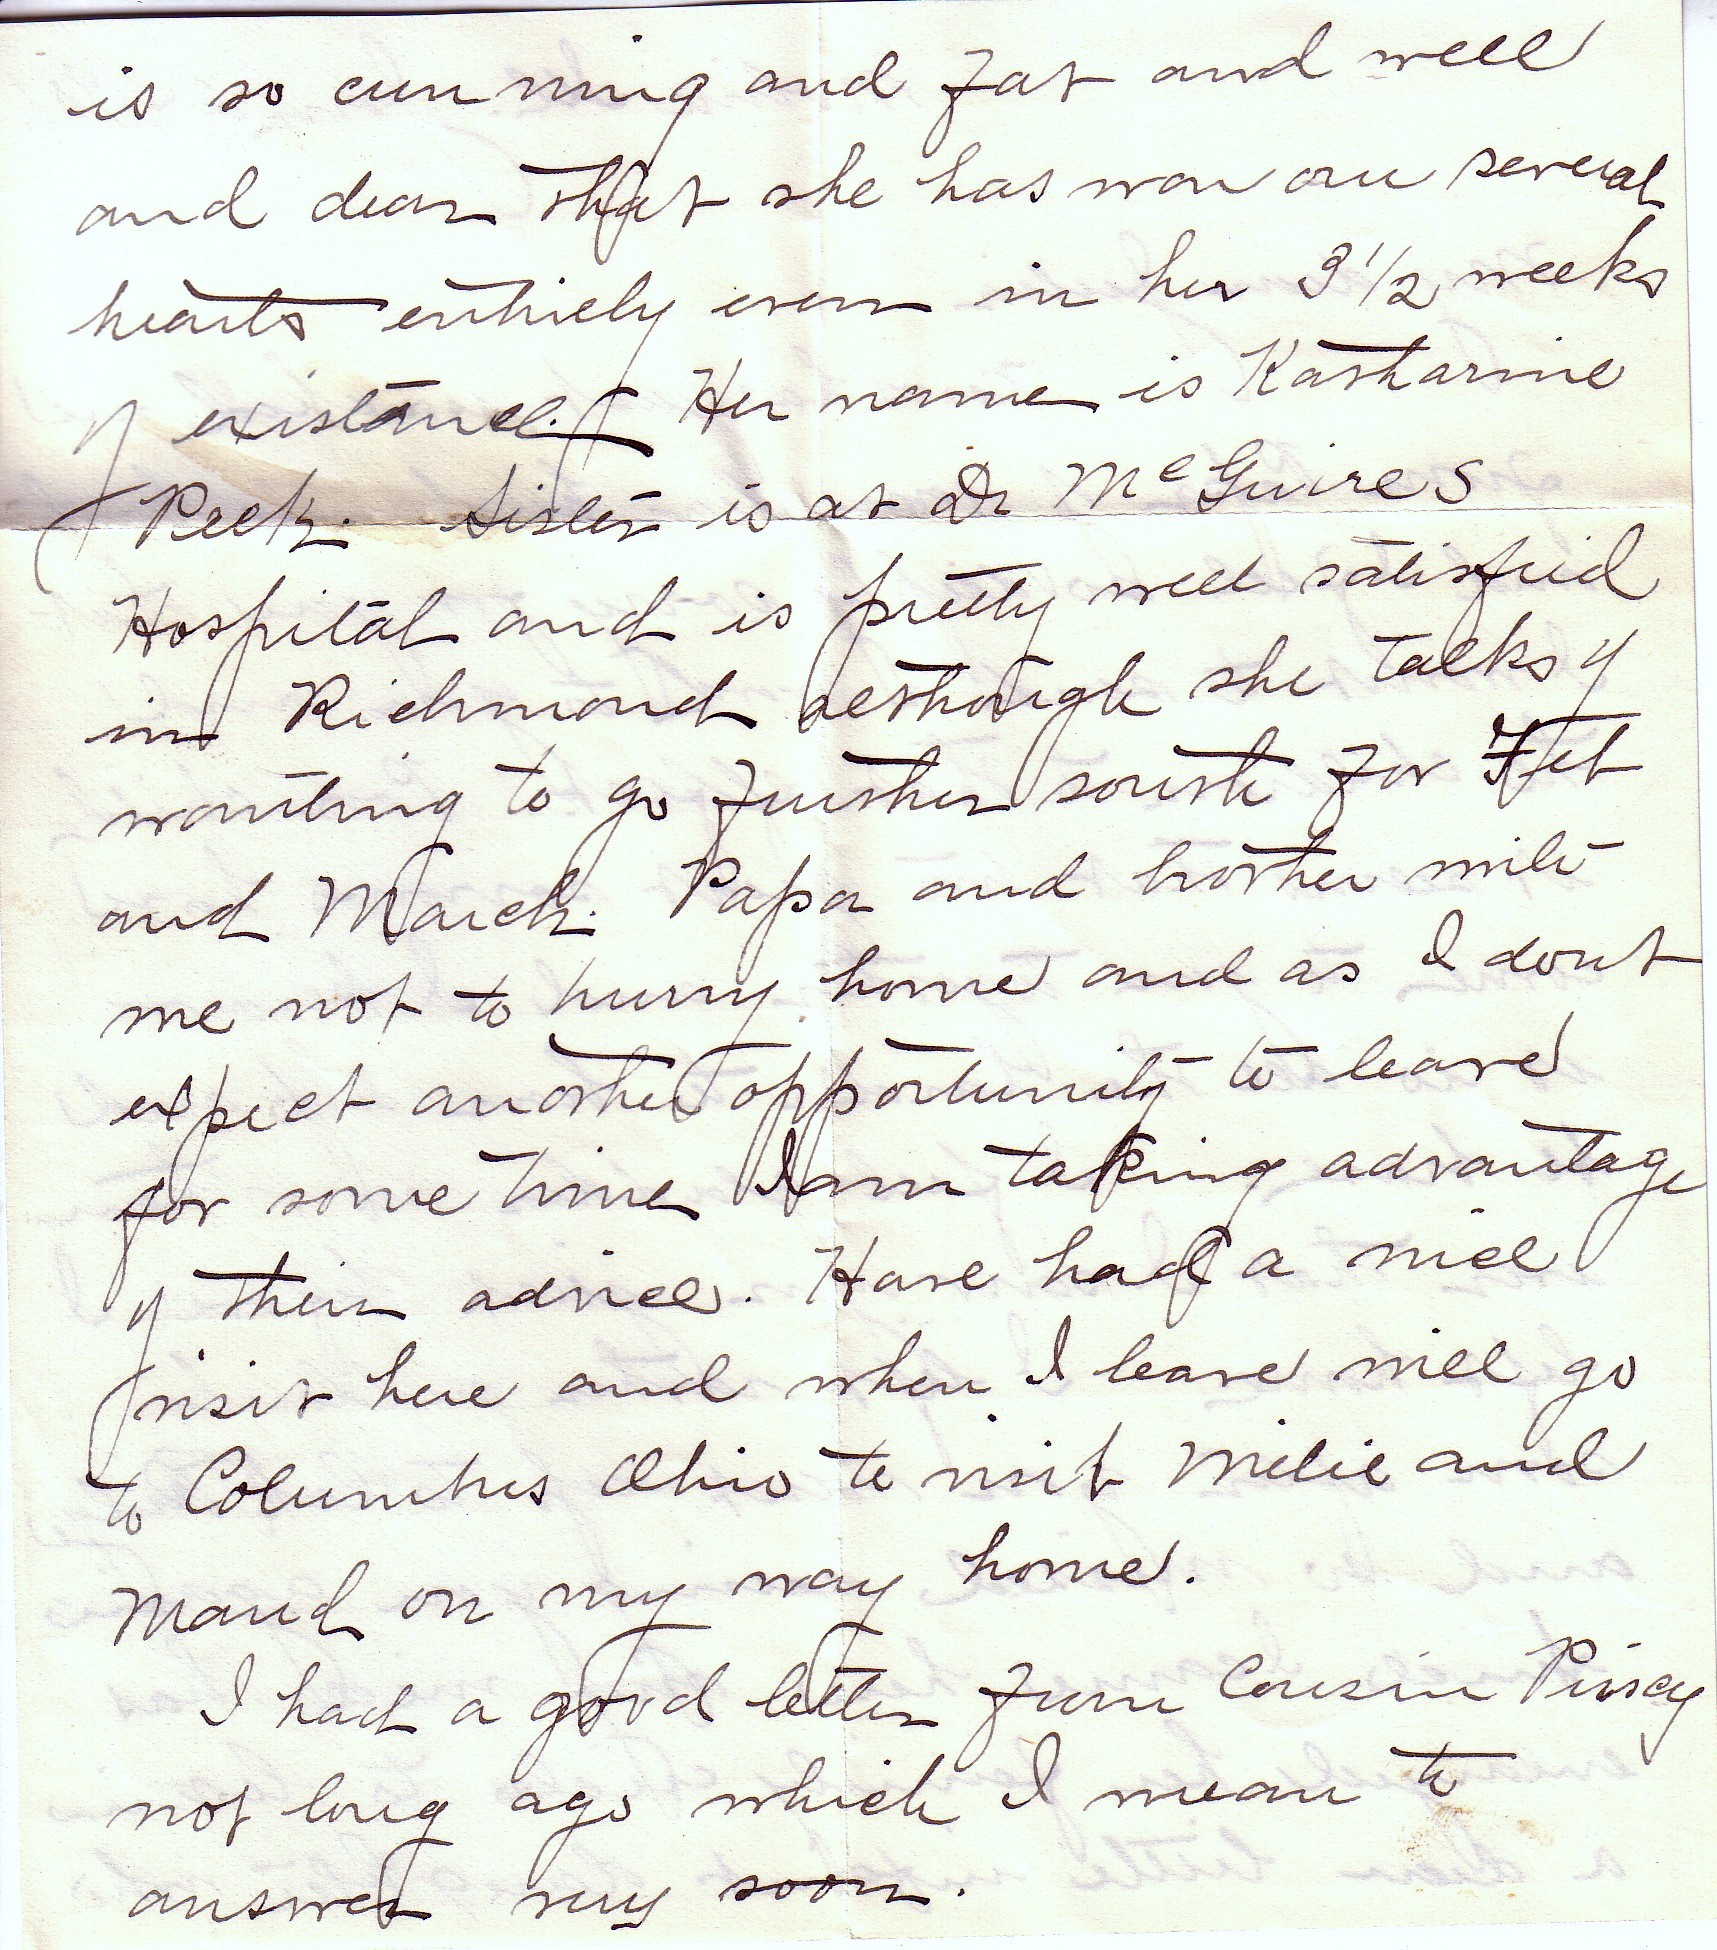 is so cunning and fat and well
and dear that she has won our several
hearts entirely even in her 3 1/2 weeks
of existance. Her name is Katharine
Peek. Sister is at Dr McGuires
Hospital and is pretty well satisfied
in Richmond although she talks of
wanting to go further south for Feb
and March. Papa and brother write
me not to hurry home and as I dont
expect another opportunity to leave
for some time I am taking advantage
of their advice. Have had a nice
visit here and when I leave will go
to Columbus Ohio to visit Milie and
Maud on my way home.
I had a good letter from Cousin
not long ago which I mean to
answer very soon.